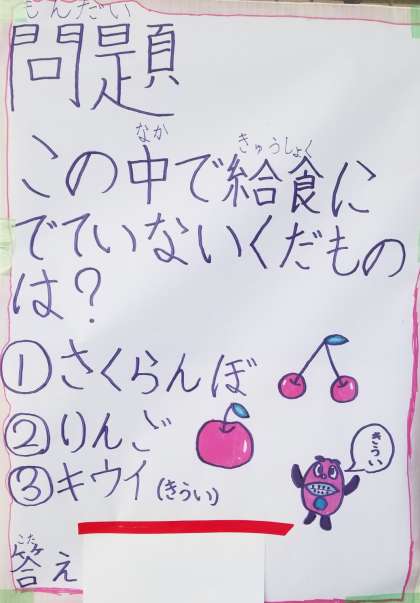 もんだい
問題
なか きゅうしょく
この中で給食に
でていないくだもの
は?
①さくらんぼ
②りんご
③キウイ(きうい)
きうい
こた
答え